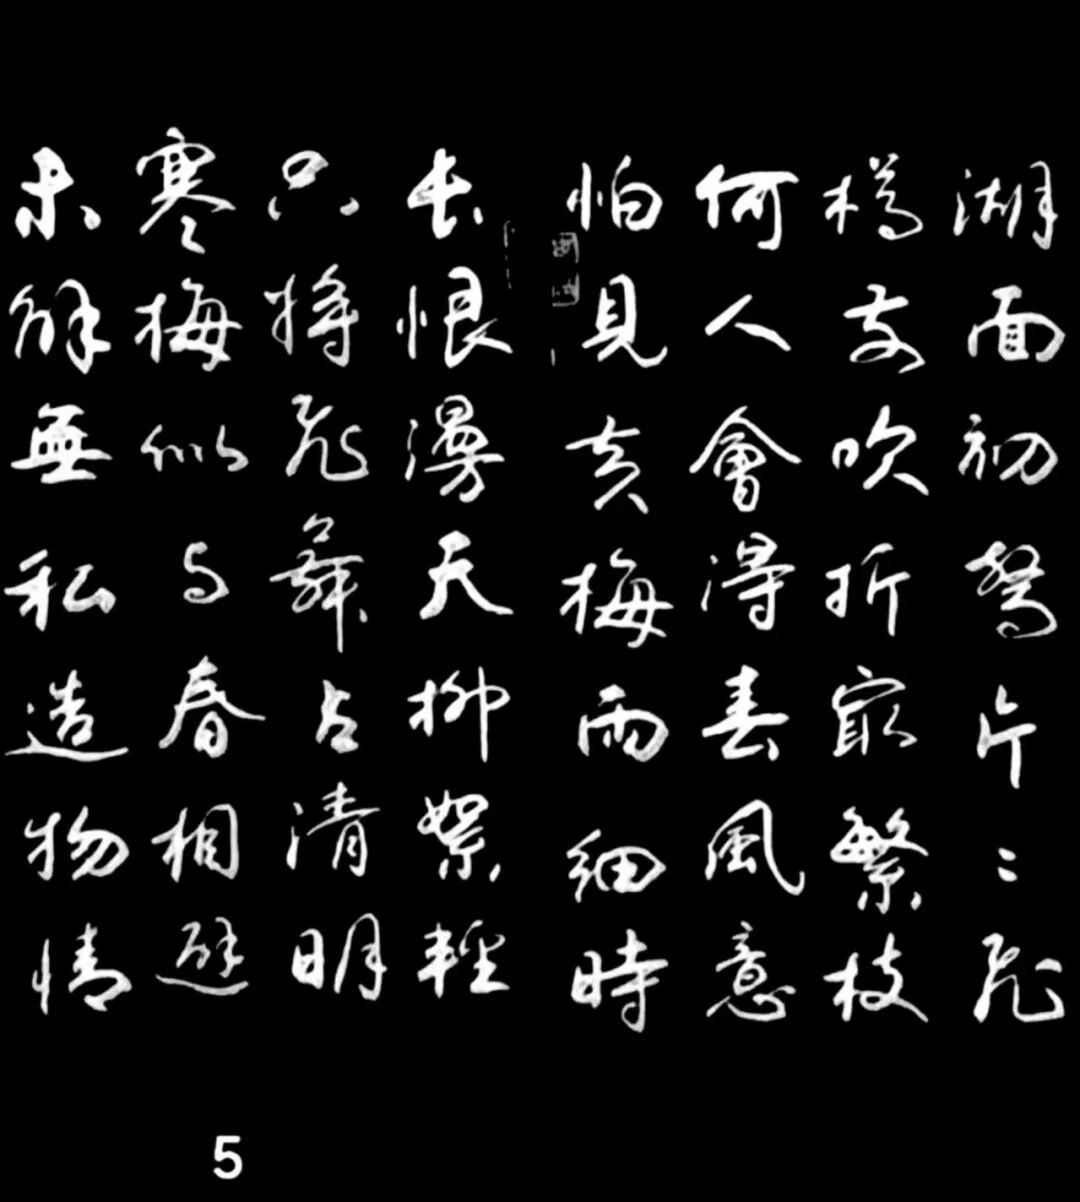 湖面初驚片〻飛
樽前吹折最繁枝
何人會得春風意
怕見黃梅雨細時
長恨漫天柳絮輕
只將飛舞占清明
寒梅似与春相避
未解無私造物情
5